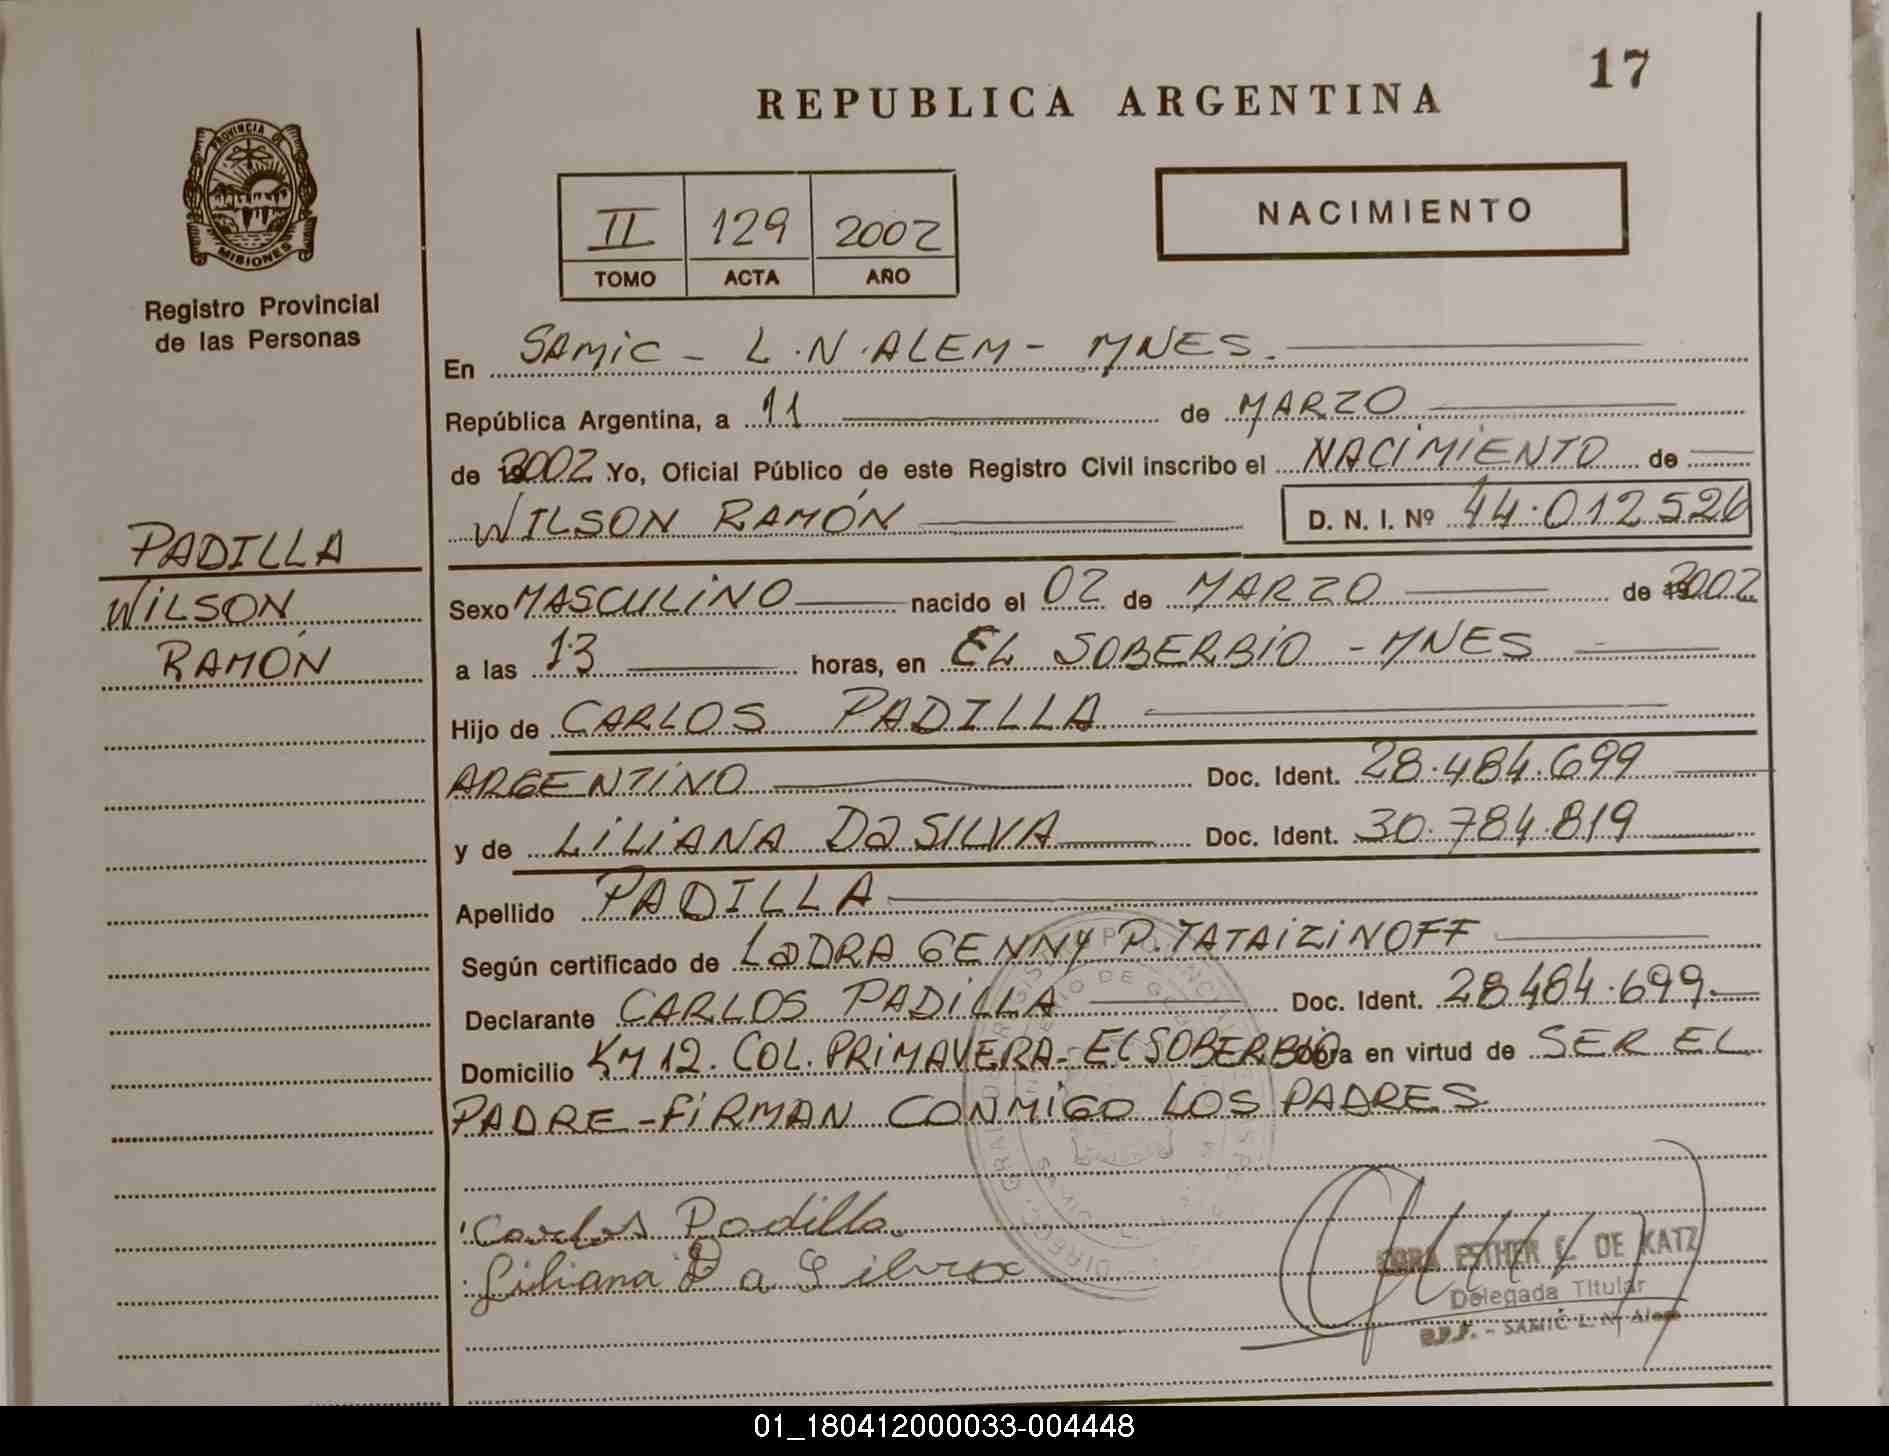 17
REPUBLICA ARGENTINA
PROVINCIA DE
MISIONES
Registro Provincial
de las Personas
II 129 2002
TOMO ACTA AÑO
NACIMIENTO
En SAMIC - L.N.ALEM - MNES.
República Argentina, a 11 de MARZO
de 2002 Yo, Oficial Público de este Registro Civil inscribo el NACIMIENTO de
WILSON RAMÓN D. N. I. Nº 44.012526
PADILLA
WILSON
RAMÓN
Sexo MASCULINO nacido el 02 de MARZO de 2002
a las 13 horas, en EL SOBERBIO - MNES
Hijo de CARLOS PADILLA
ARGENTINO Doc. Ident. 28.484.699
y de LILIANA Da SILVA Doc. Ident. 30.784.819
Apellido PADILLA
Según certificado de LaDRA GENNY P. TATAIZINOFF
Declarante CARLOS PADILLA Doc. Ident. 28484.699.
Domicilio KM 12. COL. PRIMAVERA - EL SOBERBIO obra en virtud de SER EL
PADRE - FIRMAN CONMIGO LOS PADRES
Carlos Padilla
Liliana Da
ESTHER C. DE KATZ
Delegada Titular
SAMIC L. N. Alem
01_180412000033-004448